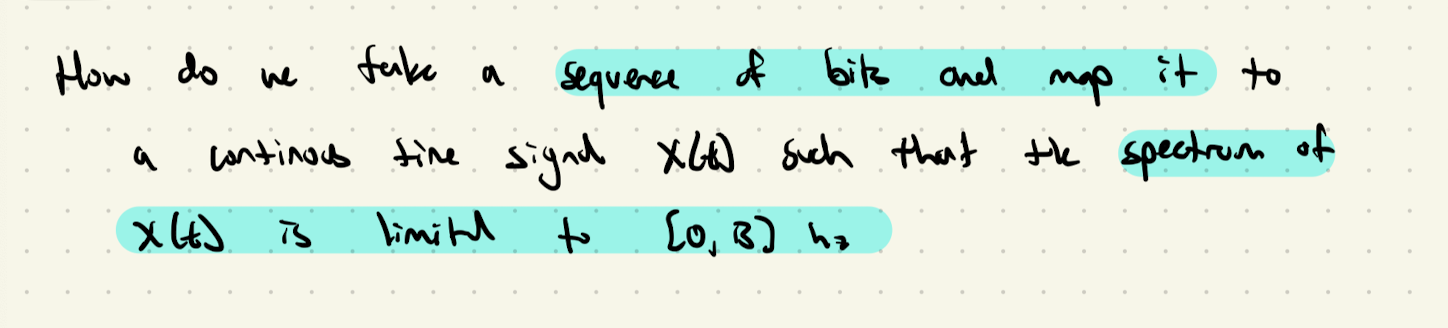 How do we take a sequence of bits and map it to
a continous time signal X(t) such that the spectrum of
X(t) is limited to [0, B] hz